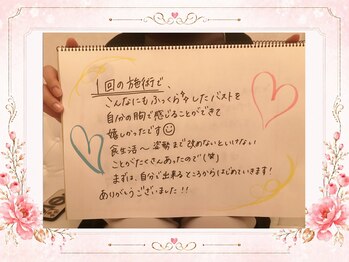 1回の施術で、
こんなにもふっくらしたバストを
自分の胸で感じることができて
嬉しかったです
食生活〜姿勢まで改めないといけない
ことがたくさんあったので(笑)
まずは、自分で出来るところからはじめていきます!
ありがとうございました!!